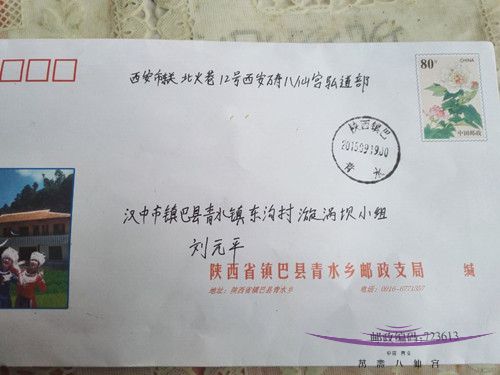 80分
CHINA
中国邮政
陕西镇巴
2015.09.19.00
西安市 北火巷12号西安 八仙宫弘道部
汉中市镇巴县青水镇东沟村漩涡坝小组
刘元平
陕西省镇巴县青水乡邮政支局 缄
地址:陕西省镇巴县青水乡 电话:0916-6771357
邮政编码:723613
中国 西安
万寿八仙宫